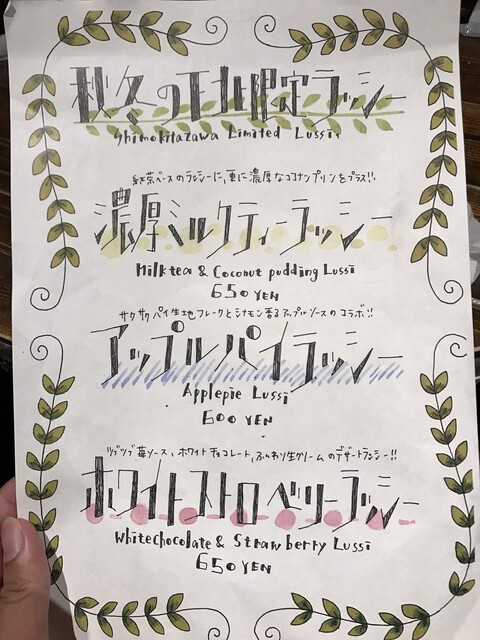 秋冬の下北限定ラッシー
Shimokitazawa Limited Lussi
紅茶ベースのラッシーに、更に濃厚なココナッツプリンをプラス!!
濃厚ミルクティーラッシー
Milk tea & Coconut pudding Lussi
650 YEN
サクサクパイ生地フレークとシナモン香るアップルソースのコラボ!!
アップルパイラッシー
Applepie Lussi
600 YEN
ツブツブ苺ソース、ホワイトチョコレート、ふんわり生クリームのデザートラッシー!!
ホワイトストロベリーラッシー
Whitechocolate & Strawberry Lussi
650 YEN